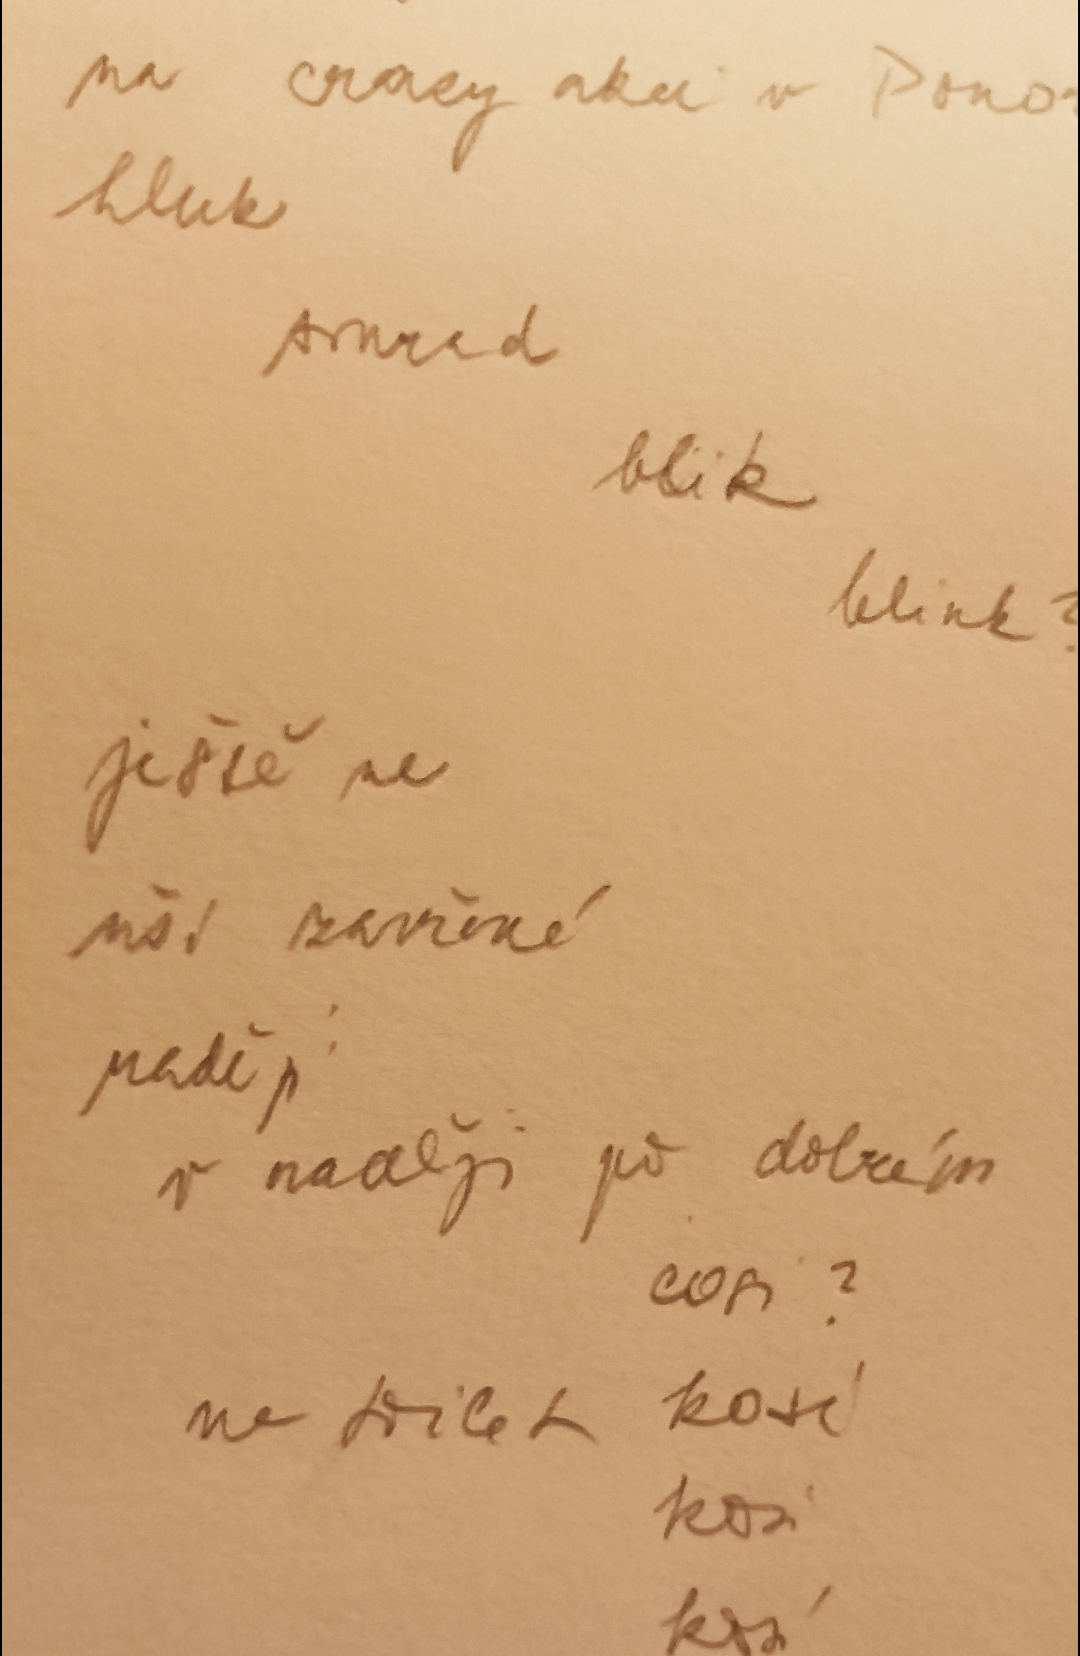 na crazy akci v Ponor
hluk
smrad
blik
blink?
ještě ne
uši zavřené
naděj
v naději po dobrém
cosi?
na třicet kosé
kosi
kosí